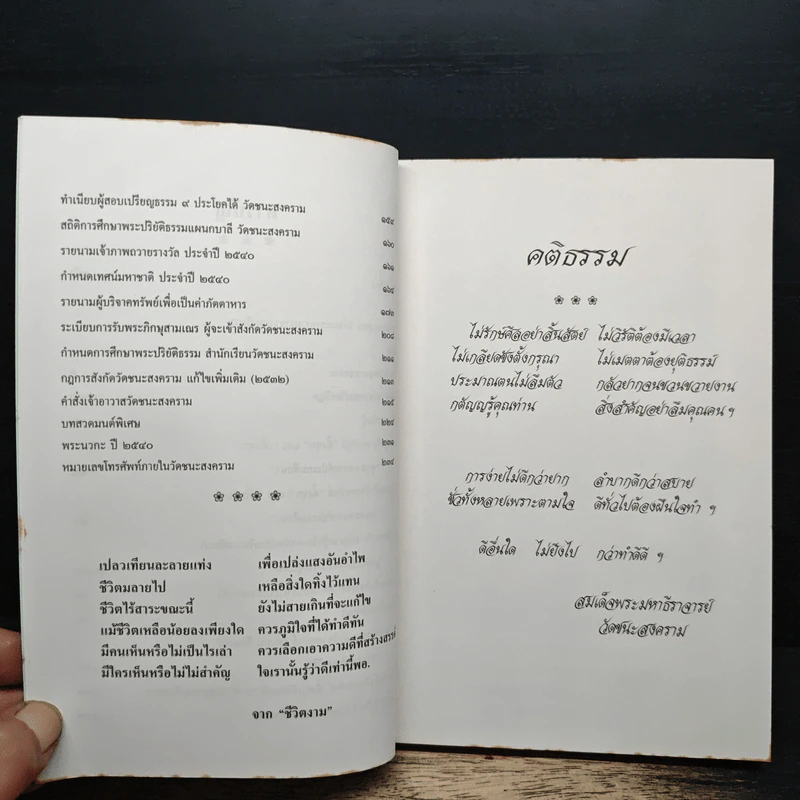 ทำเนียบผู้สอบเปรียญธรรม ๙ ประโยคได้ วัดชนะสงคราม ๑๕๔
สถิติการศึกษาพระปริยัติธรรมแผนกบาลี วัดชนะสงคราม ๑๖๐
รายนามเจ้าภาพถวายรางวัล ประจำปี ๒๕๔๐ ๑๖๑
กำหนดเทศน์มหาชาติ ประจำปี ๒๕๔๐ ๑๖๔
รายนามผู้บริจาคทรัพย์เพื่อเป็นค่าภัตตาหาร ๑๗๓
ระเบียบการรับพระภิกษุสามเณร ผู้จะเข้าสังกัดวัดชนะสงคราม ๒๐๘
กำหนดการศึกษาพระปริยัติธรรม สำนักเรียนวัดชนะสงคราม ๒๑๑
กฎการสังกัดวัดชนะสงคราม แก้ไขเพิ่มเติม (๒๕๓๒) ๒๑๓
คำสั่งเจ้าอาวาสวัดชนะสงคราม ๒๑๕
บทสวดมนต์พิเศษ ๒๒๔
พระนวกะ ปี ๒๕๔๐ ๒๓๑
หมายเลขโทรศัพท์ภายในวัดชนะสงคราม ๒๓๔
เปลวเทียนละลายแท่ง เพื่อเปล่งแสงอันอำไพ
ชีวิตมลายไป เหลือสิ่งใดทิ้งไว้แทน
ชีวิตไร้สาระขณะนี้ ยังไม่สายเกินที่จะแก้ไข
แม้ชีวิตเหลือน้อยลงเพียงใด ควรภูมิใจที่ได้ทำดีทัน
มีคนเห็นหรือไม่เป็นไรเล่า ควรเลือกเอาความดีที่สร้างสรรค์
มีใครเห็นหรือไม่ไม่สำคัญ ใจเรานั้นรู้ว่าดีเท่านี้พอ.
จาก "ชีวิตงาม"
คติธรรม
ไม่รักษ์ศีลอย่าสิ้นสัตย์ ไม่วิรัติต้องมีเวลา
ไม่เกลียดชังตั้งกรุณา ไม่เมตตาต้องยุติธรรม์
ประมาณตนไม่ลืมตัว กลัวยากจนขวนขวายงาน
กตัญญูรู้คุณท่าน สิ่งสำคัญอย่าลืมคุณคน ฯ
การง่ายไม่ดีกว่ายาก ลำบากดีกว่าสบาย
ชั่วทั้งหลายเพราะตามใจ ดีทั่วไปต้องฝืนใจทำ ฯ
ดีอื่นใด ไม่ยิ่งไป กว่าทำดีดี ฯ
สมเด็จพระมหาธีราจารย์
วัดชนะสงคราม